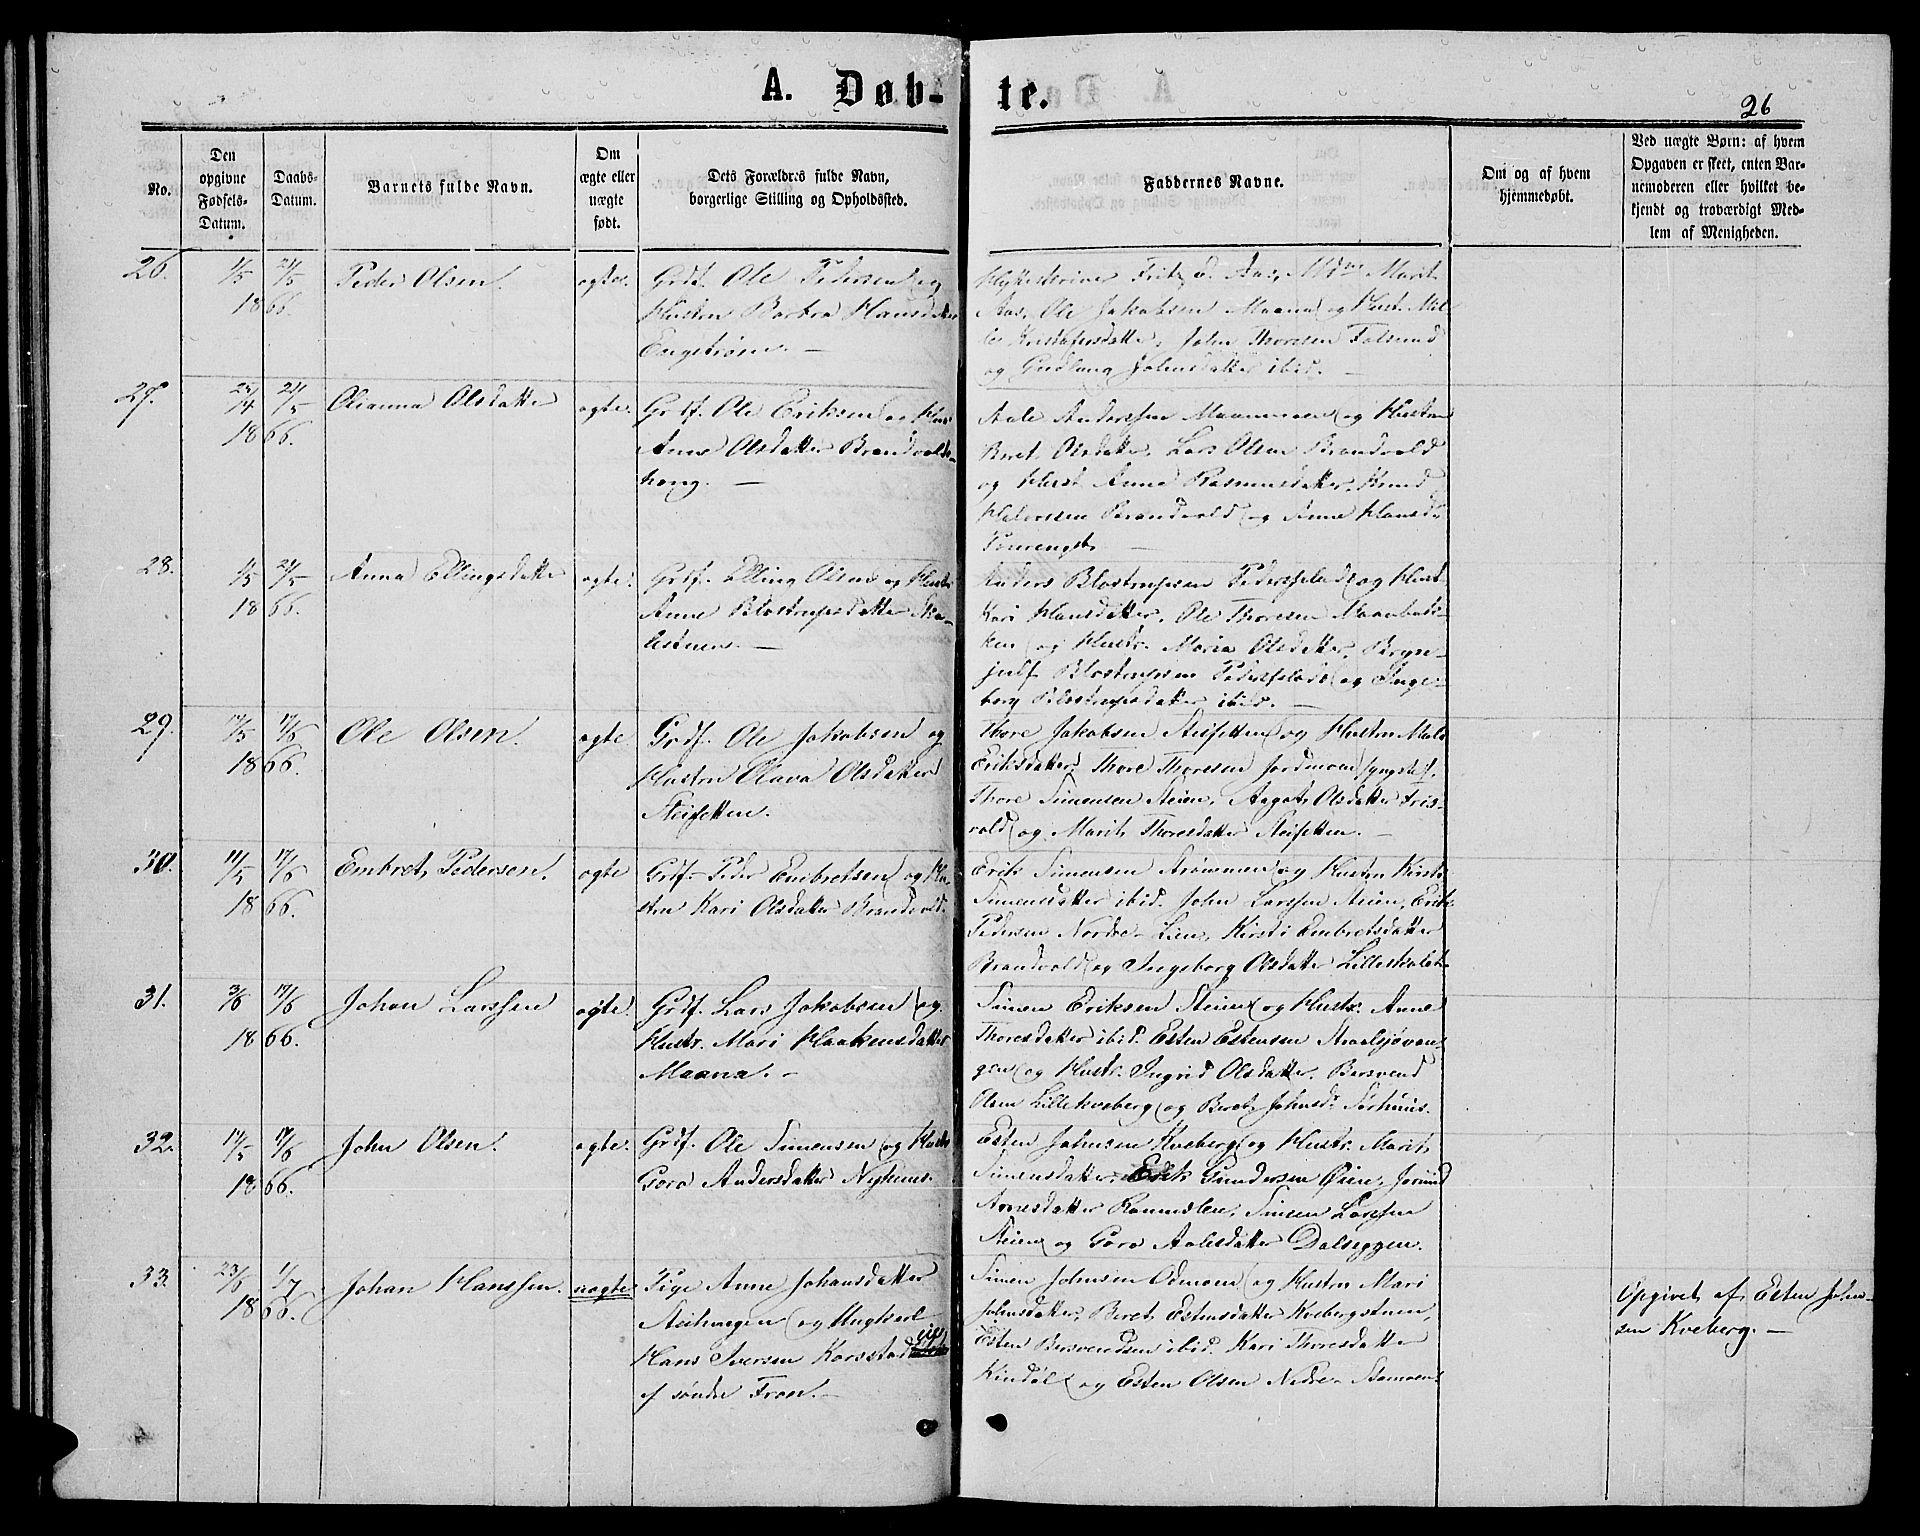 A. Døb-te.
26
No.
Den opgivne Fødsels-Datum.
Daabs-Datum.
Barnets fulde Navn.
Om ægte eller uægte født.
Dets Forældres fulde Navn,
borgerlige Stilling og Opholdssted.
Faddernes Navne.
Om og af hvem
hjemmedøbt.
Ved uægte Børn: af hvem
Opgaven er skeet, enten Bar-
nemoderen eller hvilket be-
kjendt og troværdigt Med-
lem af Menigheden.
26. 1/5 21/5 1866. Peder Olsen. ægte.
Grdf. Ole Pedersen og
Hustru Barbra Hansdatter
Engstrøm. —
Fritz Aas, Marit
Aas, Ole Jakobsen Maana og Hust.
Kristofersdatter, John Thoresen
og Gudlaug Johnsdatter ibid. —
27. 21/5 1866. Olianna Olsdatter ægte.
Grdf. Ole Eriksen og
Anne Olsdatter Brandvolds-
haug. —
Aale Anderssen og Hustru
Beret Olsdatter, Lars Olsen Brandvold
og Hust. Anne Rasmusdatter, Knud
Brandvold og Anne Hansd.
28. 21/5 1866. Anna Ellingsdatter ægte.
Grdf. Elling Olsen og Hustr.
Anne Blostrupsdatter
Anders Blostrupsen og Hust.
Kari Hansdatter, Ole Thoresen Maanbak-
ken og Hustr. Maria Olsdatter, Bryn-
julf Blostrupsen og Inge-
borg Blostrupsdatter ibid. —
29. 17/5 17/6 1866. Ole Olsen. ægte
Grdf. Ole Jakobsen og
Hustru Olava Olsdatter
Steisetten.
Thore Jakobsen Steisetten og Hustru
Eriksdatter, Thore Thoresen Jordmoen (yngste),
Thore Simensen Steien, Aagot Olsdatter Fris-
vold og Marit Thoresdatter Steisetten. —
30. 11/5 17/6 1866. Embret Pedersen. ægte
Grdf. Peder Embretsen og Hu-
stru Kari Olsdatter Brandvold.
Erik Simensen Strømmen og Hustru Kirsti
Simensdatter ibid. John Larssen Steien, Erik
Pedersen Nordre-Lien, Kirsti Embretsdatter
Brandvold og Ingeborg Olsdatter
31. 3/6 17/6 1866. Johan Larssen ægte.
Grdf. Lars Jakobsen og
Hustr. Mari Haakensdatter
Maana. —
Simen Eriksen Steien og Hustr. Anne
Thoresdatter ibid. Esten Estensen
gen og Hustr. Ingrid Olsdatter. Bersvend
Olsen Lillekveberg og Beret Johnsd. Sørhuus.
32. 17/5 17/6 1866. John Olsen. ægte.
Grdf. Ole Simensen og Hustr.
Goro Andersdatter Nyhuus.
Esten Johnsen Kveberg og Hustr. Marit
Simensdatter. Erik Gundersen Øien,
Arnesdatter Simen Larssen
Steien og Goro Aalesdatter Dalseggen.
33. 23/6 1/7 1866. Johan Hanssen. uægte.
Pige Anne Johansdatter
og Ungkarl
Hans Iversen Korsstad
af søndre Fron. —
Simen Johnsen Odmoen og Hustru Mari
Johnsdatter, Beret Estensdatter Kvebergstuen,
Esten Bersvendsen ibid. Kari Thoresdatter
Kindøl og Esten Olsen Nedre-
Opgivet af Esten John-
sen Kveberg. —